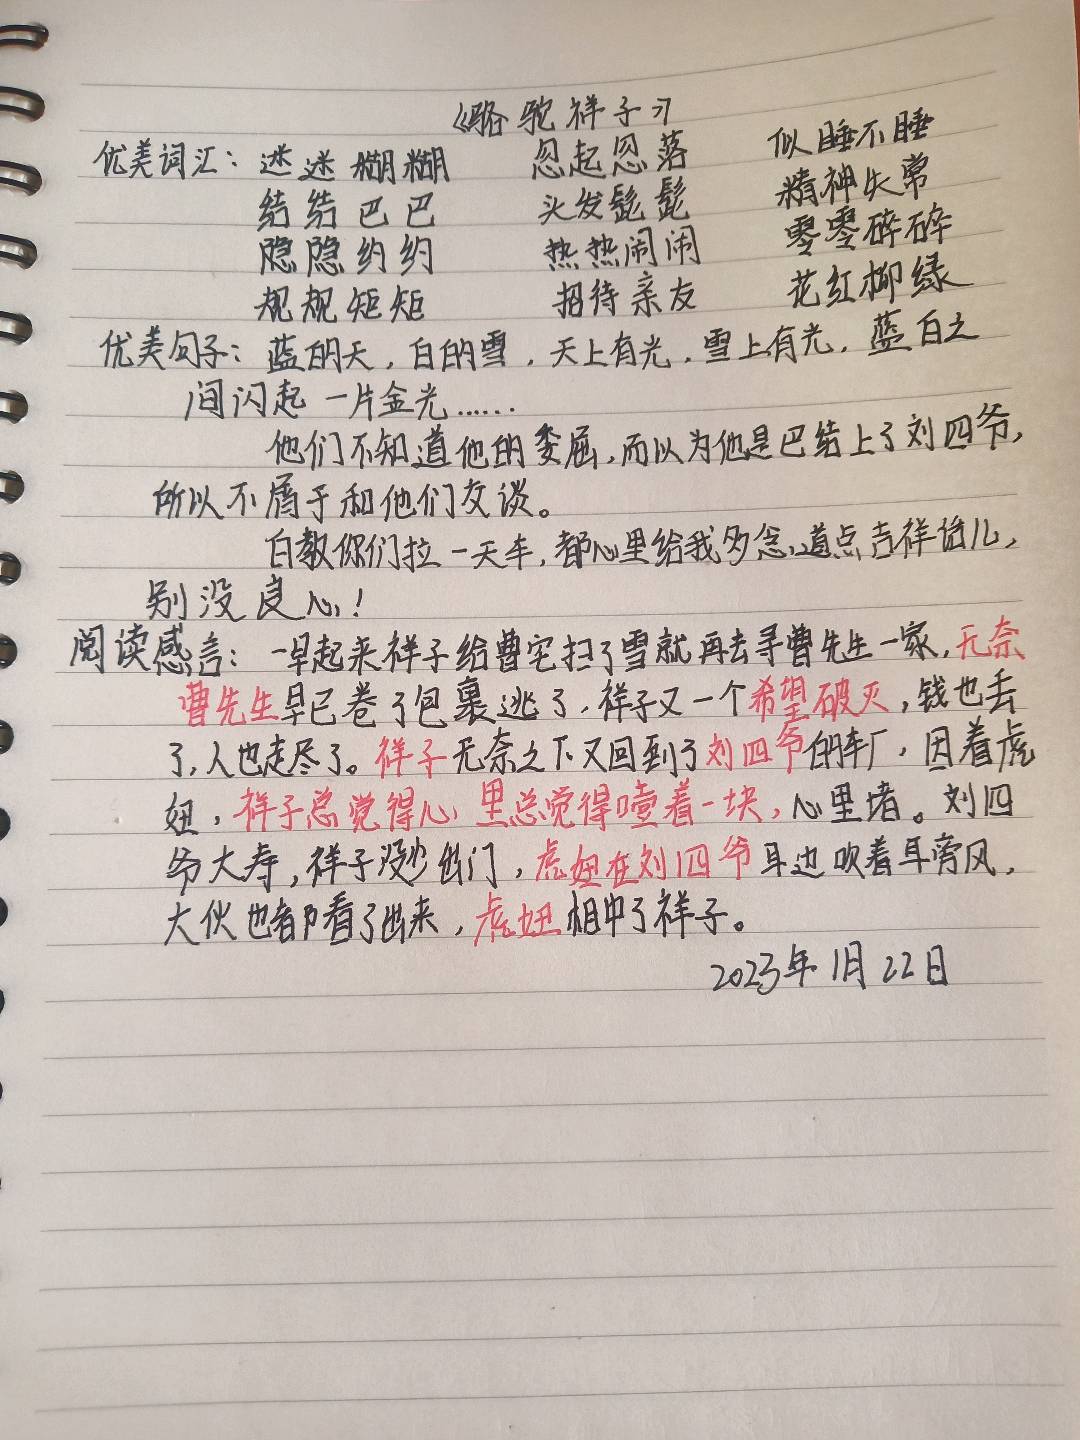 《骆驼祥子》
优美词汇：迷迷糊糊 忽起忽落 似睡不睡
结结巴巴 头发髭髭 精神失常
隐隐约约 热热闹闹 零零碎碎
规规矩矩 招待亲友 花红柳绿
优美句子：蓝的天，白的雪，天上有光，雪上有光，蓝白之
间闪起一片金光……
他们不知道他的委屈，而以为他是巴结上了刘四爷，
所以不屑于和他们交谈。
白教你们拉一天车，都心里给我多念道点吉祥话儿，
别没良心！
阅读感言：一早起来祥子给曹宅扫了雪就再去寻曹先生一家，无奈
曹先生早已卷了包裹逃了，祥子又一个希望破灭，钱也丢
了，人也走尽了。祥子无奈之下又回到了刘四爷的车厂，因着虎
妞，祥子总觉得心里总觉得噎着一块，心里堵。刘四
爷大寿，祥子没少出门，虎妞在刘四爷耳边吹着耳旁风，
大伙也都看了出来，虎妞相中了祥子。
2023年1月22日